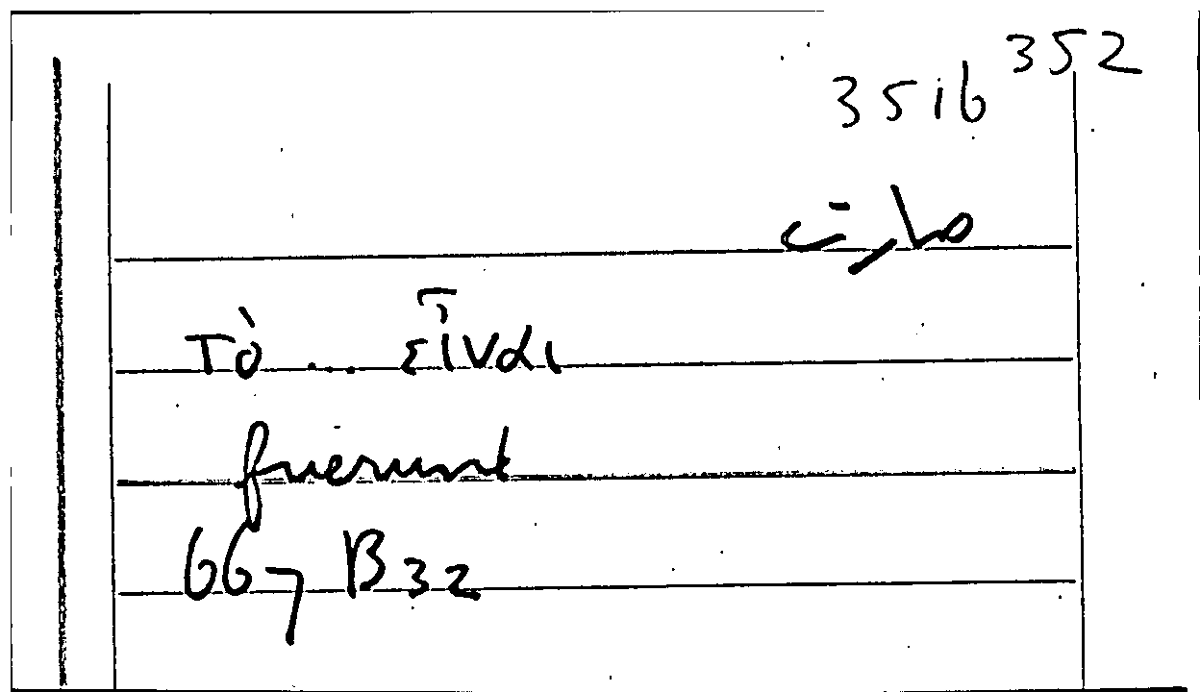 352
3516
صارت
τὸ ... εἶναι
fuerunt
667 B32